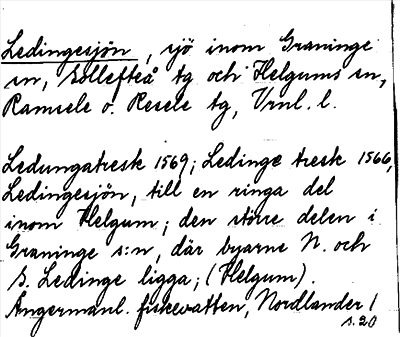 Ledingesjön, sjö inom Graninge
sn, Sollefteå tg och Helgums sn,
Ramsele o. Resele tg, Vrnl. l.
Ledungatresk 1569; Ledinge tresk 1566,
Ledingesjön, till en ringa del
inom Helgum; den större delen i
Graninge s:n, där byarne N. och
S. Ledinge ligga; (Helgum).
Ångermanl. fiskevatten, Nordlander 1
s. 20